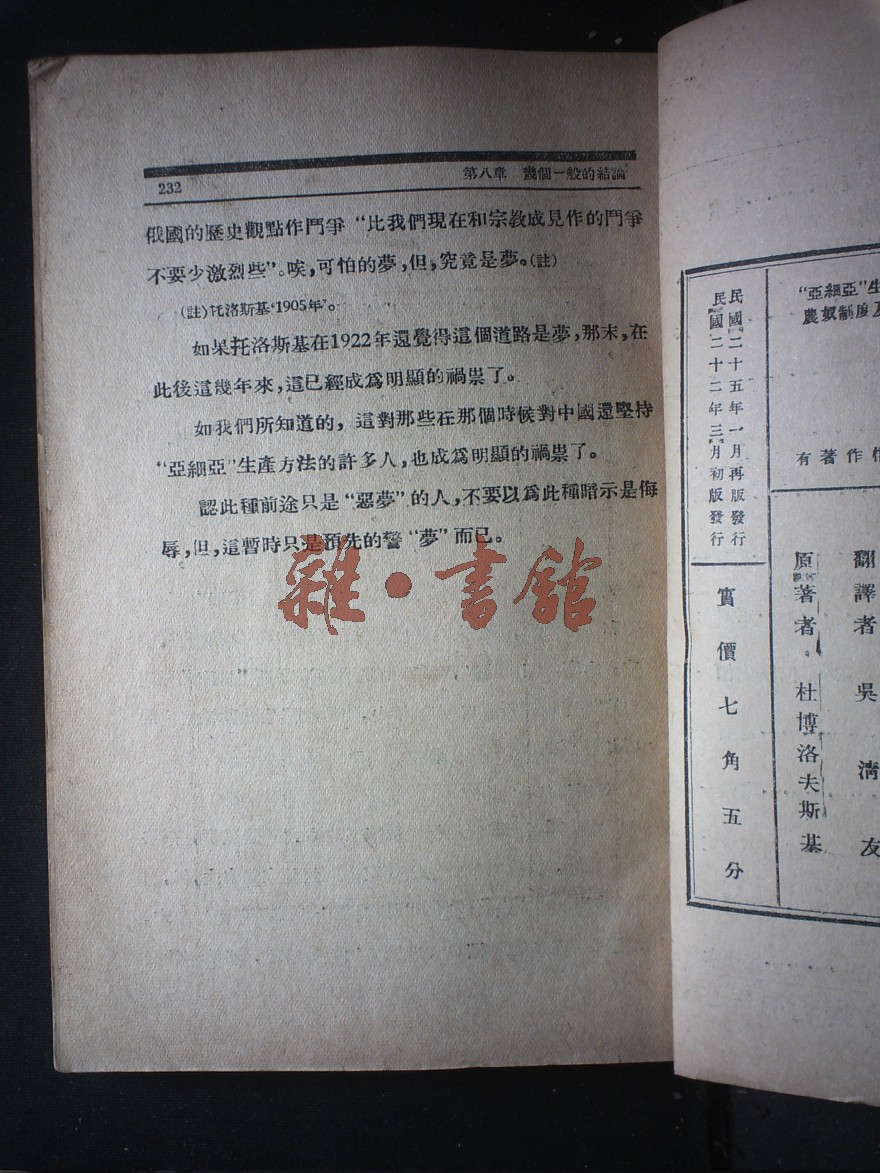 232
第八章 幾個一般的結論
俄國的歷史觀點作鬥爭“比我們現在和宗教成見作的鬥爭
不要少激烈些”。唉，可怕的夢，但，究竟是夢。(註)
(註)托洛斯基‘1905年’。
如果托洛斯基在1922年還覺得這個道路是夢，那末，在
此後這幾年來，這已經成爲明顯的禍祟了。
如我們所知道的，這對那些在那個時候對中國還堅持
“亞細亞”生產方法的許多人，也成爲明顯的禍祟了。
認此種前途只是“惡夢”的人，不要以爲此種暗示是侮
辱，但，這暫時只是預先的警“夢”而已。
雜·書館
“亞細亞”生
農奴制度及
有著作權
翻譯者 吳清友
原著者 杜博洛夫斯基
民國二十五年一月再版發行
民國二十二年三月初版發行
實價七角五分